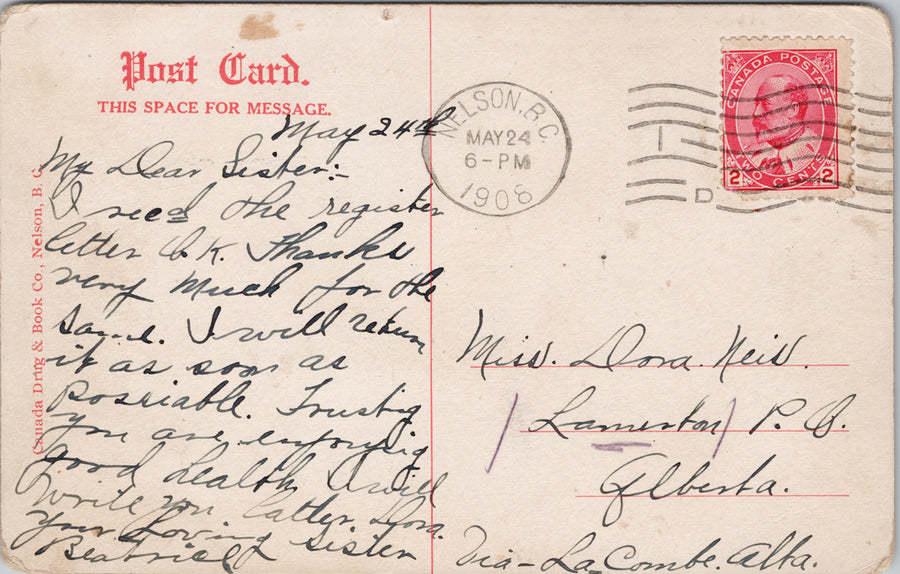 Post Card.
THIS SPACE FOR MESSAGE.
May 24th
My Dear Sister:-
I recd the register
letter O.K. Thanks
very Much for the
Same. I will return
it as soon as
Possriable. Trusting
you are enjoyig
good health I will
write you latter. Dora.
your loving sister
Beatrice
Canada Drug & Book Co., Nelson, B. C.
NELSON. B.C.
MAY 24
6-PM
1908
D
CANADA POSTAGE
2 TWO CENTS 2
Miss. Dora. Neis.
Lamerton P. O.
Alberta.
Via-La Combe. Alta.